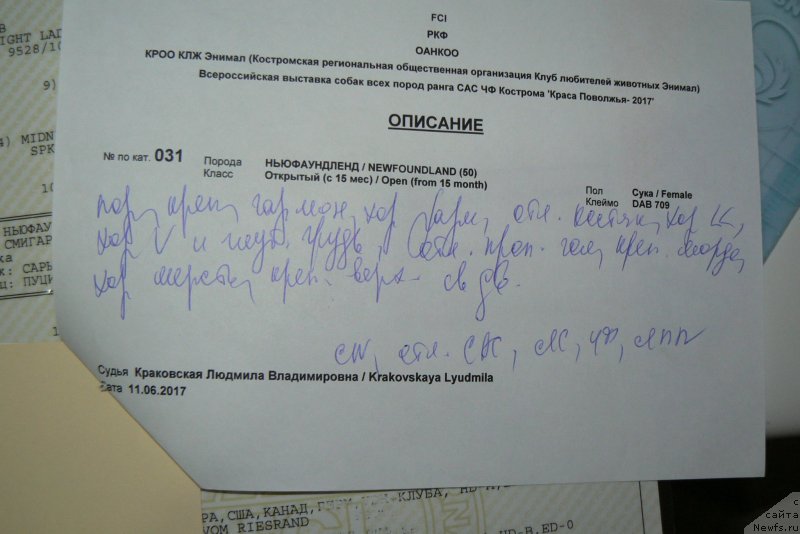 FCI
РКФ
ОАНКОО
КРОО КЛЖ Энимал (Костромская региональная общественная организация Клуб любителей животных Энимал)
Всероссийская выставка собак всех пород ранга САС ЧФ Кострома 'Краса Поволжья- 2017'
ОПИСАНИЕ
№ по кат. 031 Порода НЬЮФАУНДЛЕНД / NEWFOUNDLAND (50) Пол Сука / Female
Класс Открытый (с 15 мес) / Open (from 15 month) Клеймо DAB 709
пор, креп, гармон, хор отл. костяк, хор
хор V и глуб. грудь, отл. проп. гол, креп. морда,
хор шерсть, креп. верх св дв.
CW, отл. СК, ЧФ, ЛПП
Судья Краковская Людмила Владимировна / Krakovskaya Lyudmila
Дата 11.06.2017
IGHT LAD
9528/10
9)
4) MIDN
SPK
10
НЬЮФАУ
СМИГАР
к: САРЬ
ц: ПУЦИ
РА, США, КАНАД,
VOM RIESRAND
HD-B, ED-0
с
сайта
Newfs.ru